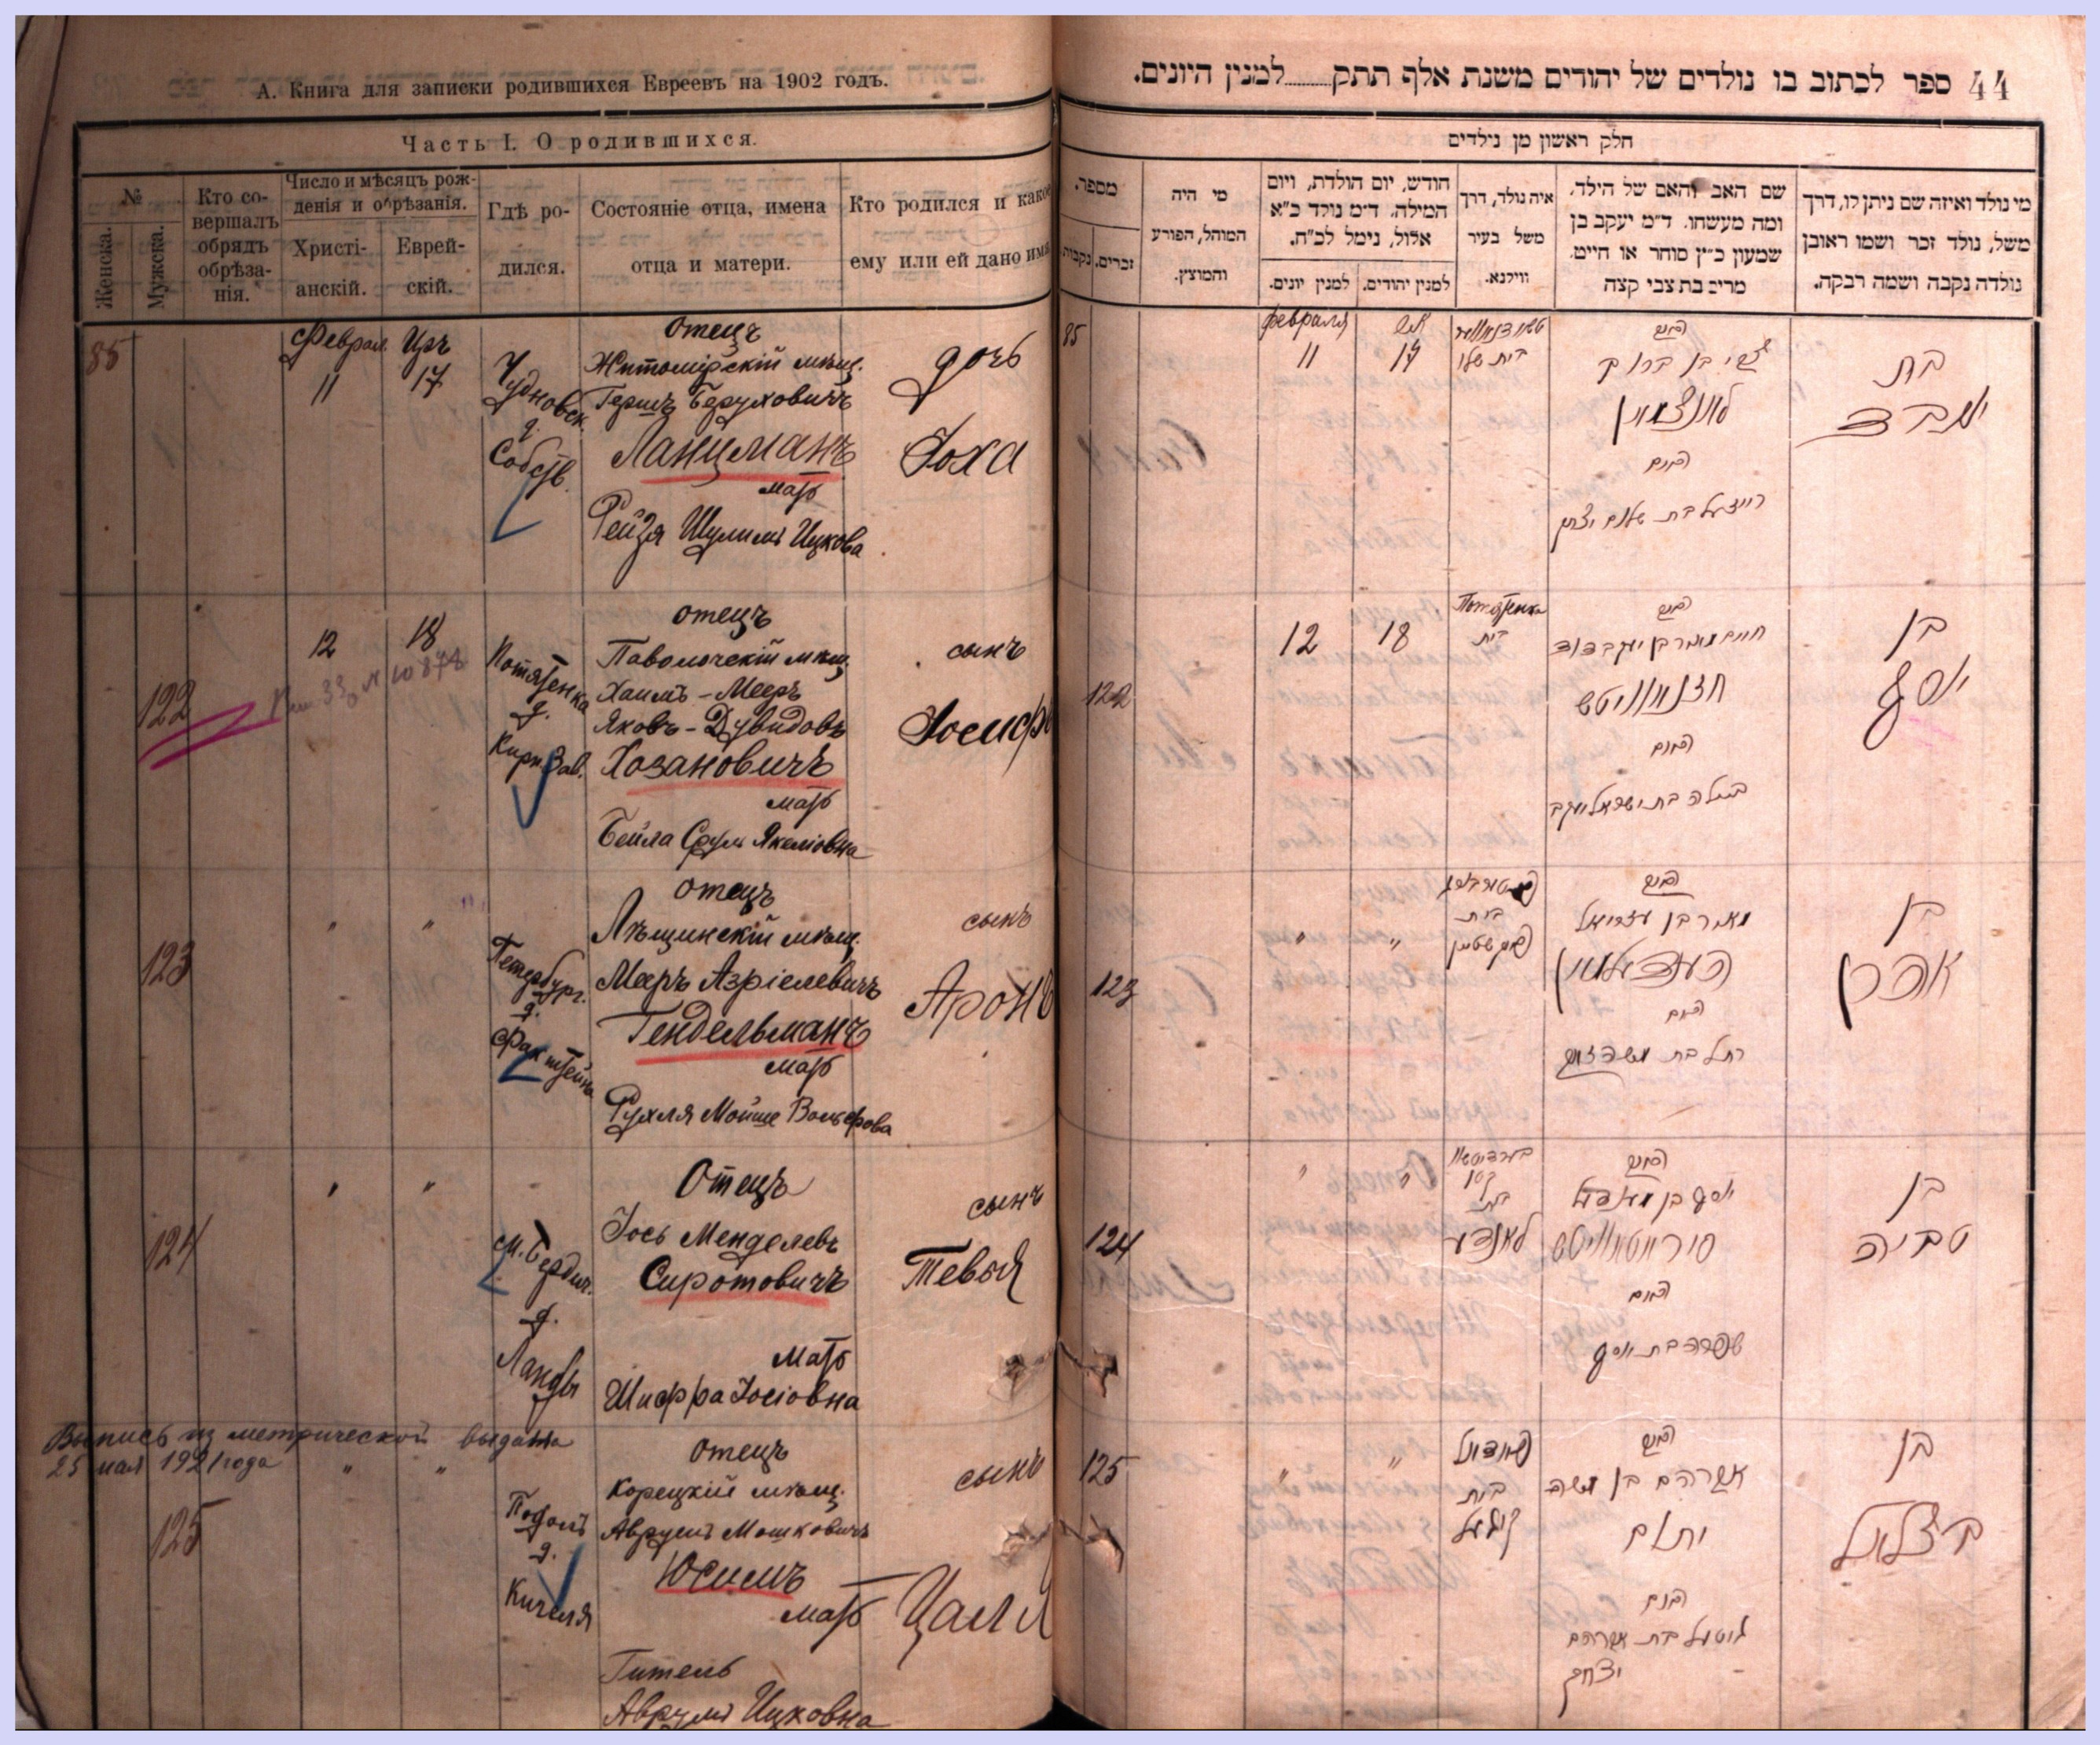 А. Книга для записки родившихся Евреевъ на 1902 годъ.
Часть I. О родившихся.
№
Женска.
Мужска.
Кто со-
вершалъ
обрядъ
обрѣза-
нія.
Число и мѣсяцъ рож-
денія и обрѣзанія.
Христі-
анскій.
Еврей-
скій.
Гдѣ ро-
дился.
Состояніе отца, имена
отца и матери.
Кто родился и какое
ему или ей дано имя
85
Феврал.
11
17
Чудновск.
д.
Собств.
отецъ
Житомірскій мѣщ.
Гершъ Беруховичъ
Ланцманъ
мать
Рейзя Шулимъ Ицкова
дочь
Іоха
122
12
18
Потятенка
д.
отецъ
Паволочскій мѣщ.
Хаимъ-Мееръ
Яковъ-Дувидовъ
Хозановичъ
мать
Бейла Срулъ Якеліовна
сынъ
Іосифъ
123
"
"
Петербург.
д.
отецъ
Лѣщинскій мѣщ.
Мееръ Азріелевичъ
Гендельманъ
мать
Рухля Мойше Вольфова
сынъ
Аронъ
124
"
"
м. Бердич.
д.
Ланды
Отецъ
Іось Менделевъ
Сиротовичъ
мать
Шифра Іосіовна
сынъ
Тевья
Выпись из метрической выдана
25 мая 1921 года
125
"
"
Подолъ
д.
Кигеля
отецъ
Корецкій мѣщ.
Аврумъ Мошковичъ
Юсимъ
мать
Гитель
Аврумъ Ицковна
сынъ
Цаля
44
ספר לכתוב בו נולדים של יהודים משנת אלף תתק......למנין היונים.
חלק ראשון מן נילדים
מספר.
נקבות
זכרים.
מי היה
המוהל, הפורע
והמוצץ.
חודש, יום הולדת, ויום
המילה. ד״מ נולד כ״א
אלול, נימל לכ״ח.
למנין יונים.
למנין יהודים.
איה נולד, דרך
משל בעיר
ווילנא.
שם האב והאם של הילד.
ומה מעשהו. ד״מ יעקב בן
שמעון כ״ץ סוחר או חייט.
מרים בת צבי קצה
מי נולד ואיזה שם ניתן לו, דרך
משל, נולד זכר ושמו ראובן
נולדה נקבה ושמה רבקה.
85
февраля
11
17
האב
צבי בן ברוך
לאנצמאן
האם
רייזעל בת שלום יצחק
בת
יוכבד
122
12
18
בית
האב
חיים מאיר בן יעקב דוד
חזנאוויטש
האם
ביילה בת ישראל יעקב
בן
יוסף
123
"
"
בית
האב
מאיר בן עזריאל
הענדעלמאן
האם
רחל בת משה זאב
בן
אהרן
124
"
"
בית
לאנדע
האב
יוסף בן מענדל
סיראטאוויטש
האם
שפרה בת יוסף
בן
טביה
125
"
"
פאדאל
בית
קיגעל
האב
אברהם בן משה
יתום
האם
גיטעל בת אברהם
יצחק
בן
בצלאל